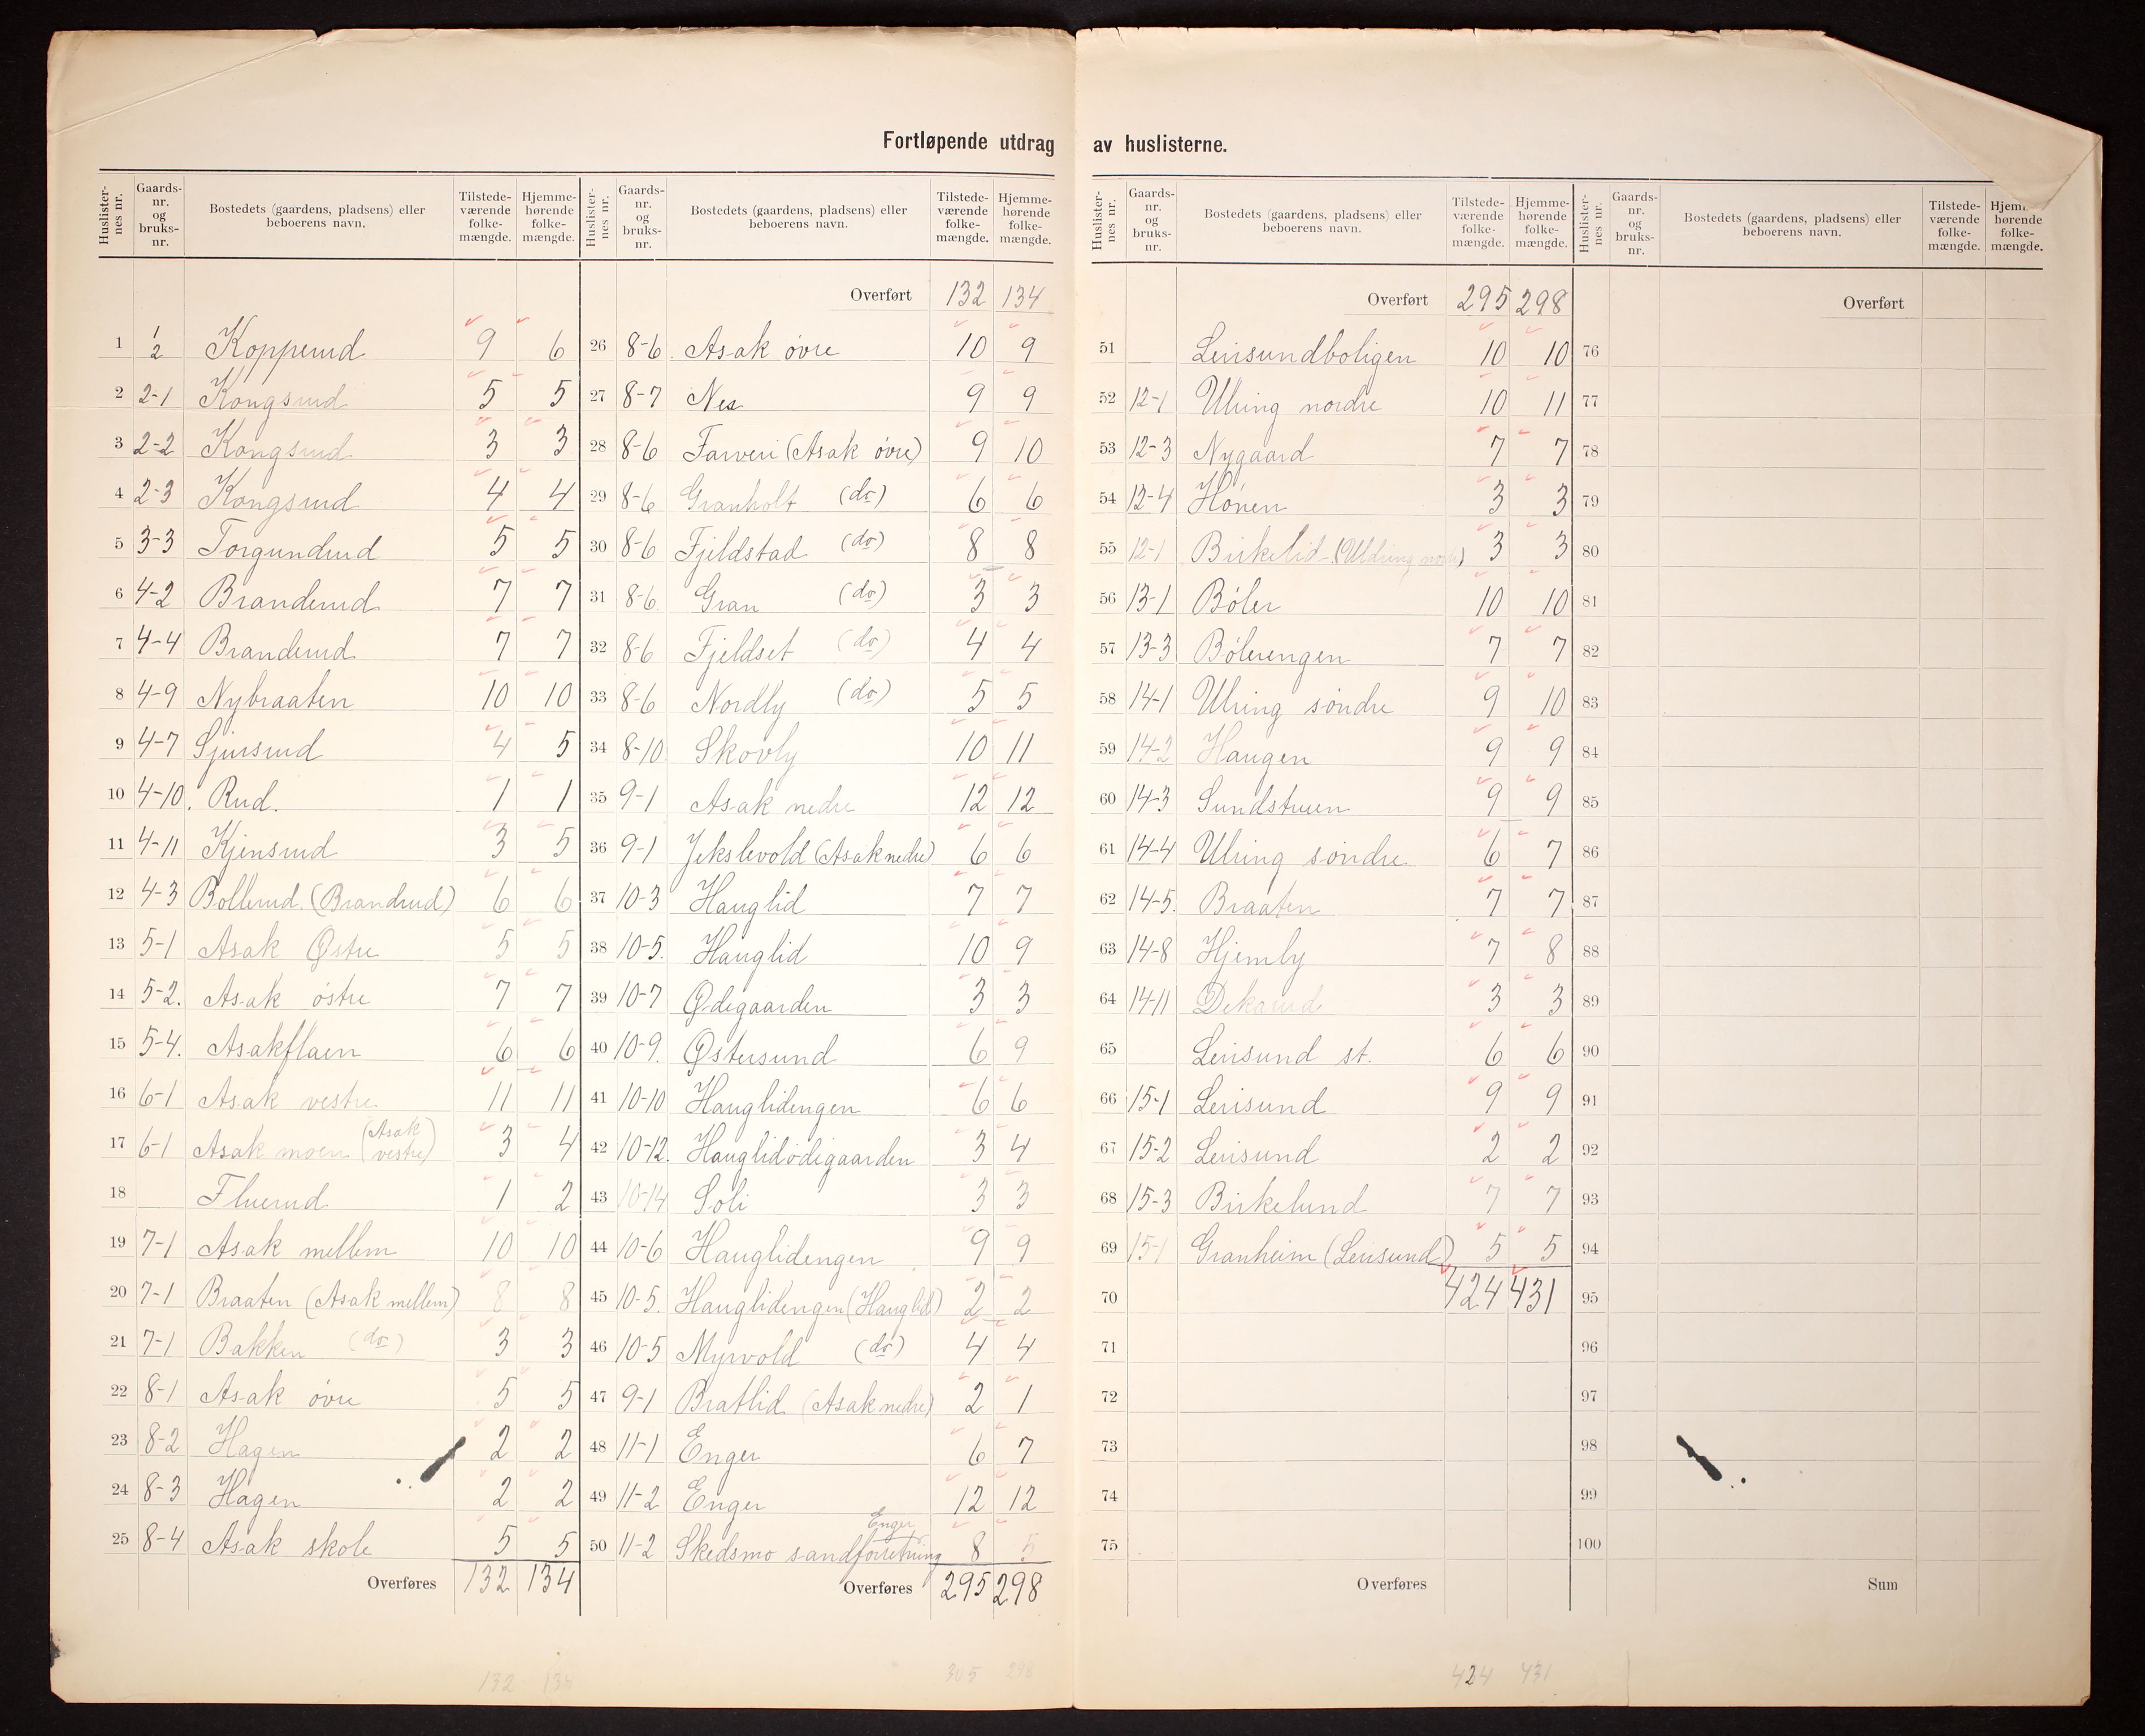 Fortløpende utdrag av huslisterne.
Huslister-nes nr. Gaards-nr. og bruks-nr. Bostedets (gaardens, pladsens) eller beboerens navn. Tilstede-værende folke-mængde. Hjemme-hørende folke-mængde.
1 1/2 Kopperud 9 6
2 2-1 Kongsrud 5 5
3 2-2 Kongsrud 3 3
4 2-3 Kongsrud 4 4
5 3-3 Torgundrud 5 5
6 4-2 Branderud 7 7
7 4-4 Branderud 7 7
8 4-9 Nybraaten 10 10
9 4-7 Sjursrud 4 5
10 4-10. Rud. 1 1
11 4-11 Kjensrud 3 5
12 4-3 Bollerud. (Brandrud) 6 6
13 5-1 Asak Østre 5 5
14 5-2. Asak østre 7 7
15 5-4. Asakflaen 6 6
16 6-1 Asak vestre 11 11
17 6-1 Asak moen (Asak vestre) 3 4
18 Fluerud 1 2
19 7-1 Asak mellem 10 10
20 7-1 Braaten (Asak mellem) 8 8
21 7-1 Bakken (do) 3 3
22 8-1 Asak øvre 5 5
23 8-2 Hagen 2 2
24 8-3 Hagen 2 2
25 8-4 Asak skole 5 5
Overføres 132 134
132 134
Huslister-nes nr. Gaards-nr. og bruks-nr. Bostedets (gaardens, pladsens) eller beboerens navn. Tilstede-værende folke-mængde. Hjemme-hørende folke-mængde.
Overført 132 134
26 8-6. Asak øvre 10 9
27 8-7 Nes 9 9
28 8-6 Farveri (Asak øvre) 9 10
29 8-6 Granholt (do) 6 6
30 8-6 Fjeldstad (do) 8 8
31 8-6. Gran (do) 3 3
32 8-6 Fjeldset (do) 4 4
33 8-6 Nordly (do) 5 5
34 8-10 Skovly 10 11
35 9-1 Asak nedre 12 12
36 9-1 Jekslevold (Asak nedre) 6 6
37 10-3 Hauglid 7 7
38 10-5. Hauglid 10 9
39 10-7 Ødegaarden 3 3
40 10-9. Østersund 6 9
41 10-10 Hauglidengen 6 6
42 10-12. Hauglidødegaarden 3 4
43 10-14 Soli 3 3
44 10-6 Hauglidengen 9 9
45 10-5. Hauglidengen (Hauglid) 2 2
46 10-5 Myrvold (do) 4 4
47 9-1 Bratlid (Asak nedre) 2 1
48 11-1 Enger 6 7
49 11-2 Enger 12 12
Enger
50 11-2 Skedsmo sandforretning 8 5
Overføres 295 298
305 298
Huslister-nes nr. Gaards-nr. og bruks-nr. Bostedets (gaardens, pladsens) eller beboerens navn. Tilstede-værende folke-mængde. Hjemme-hørende folke-mængde.
Overført 295 298
51 Leirsundboligen 10 10
52 12-1 Ulring nordre 10 11
53 12-3 Nygaard 7 7
54 12-4 Hønen 3 3
55 12-1 Birkelid - (Uldring nordre) 3 3
56 13-1 Bøler 10 10
57 13-3 Bølerengen 7 7
58 14-1 Ulring søndre 9 10
59 14-2 Haugen 9 9
60 14-3 Sundstuen 9 9
61 14-4 Ulring søndre 6 7
62 14-5. Braaten 7 7
63 14-8 Hjemly 7 8
64 14-11 3 3
65 Leirsund st. 6 6
66 15-1 Leirsund 9 9
67 15-2 Leirsund 2 2
68 15-3 Birkelund 7 7
69 15-1 Granheim (Leirsund) 5 5
70 424 431
71
72
73
74
75
Overføres
424 431
Huslister-nes nr. Gaards-nr. og bruks-nr. Bostedets (gaardens, pladsens) eller beboerens navn. Tilstede-værende folke-mængde. hørende folke-mængde.
Overført
76
77
78
79
80
81
82
83
84
85
86
87
88
89
90
91
92
93
94
95
96
97
98
99
100
Sum